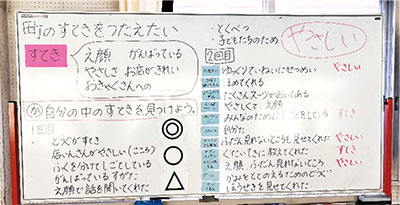 町のすてきをつたえたい
すてき
えがお がんばっている
やさしさ お店がきれい
おきゃくさんへの
か 自分の中のすてきを見つけよう。
1回目
どうぐがすてき
店いんさんがやさしい(こころ)
ふくをかけてしごとしている
がんばっているすがた
えがおで話を聞いてくれた
・とくべつ
・子どもたちのため
やさしい
2回目
ゆっくりていねいにせつめい やさしい
ほめてくれる
たくさんスーツがおいてある
やさしくて えがお
みんなのためにしごとをしている すてき
自分た
ふだん見れないところも見せてくれた やさしい
くわしくていねいに教えてくれた すてき
えがお ふだん見れないところ やさしい
かみをととのえるためのどうぐ
ほうせきを見せてくれた